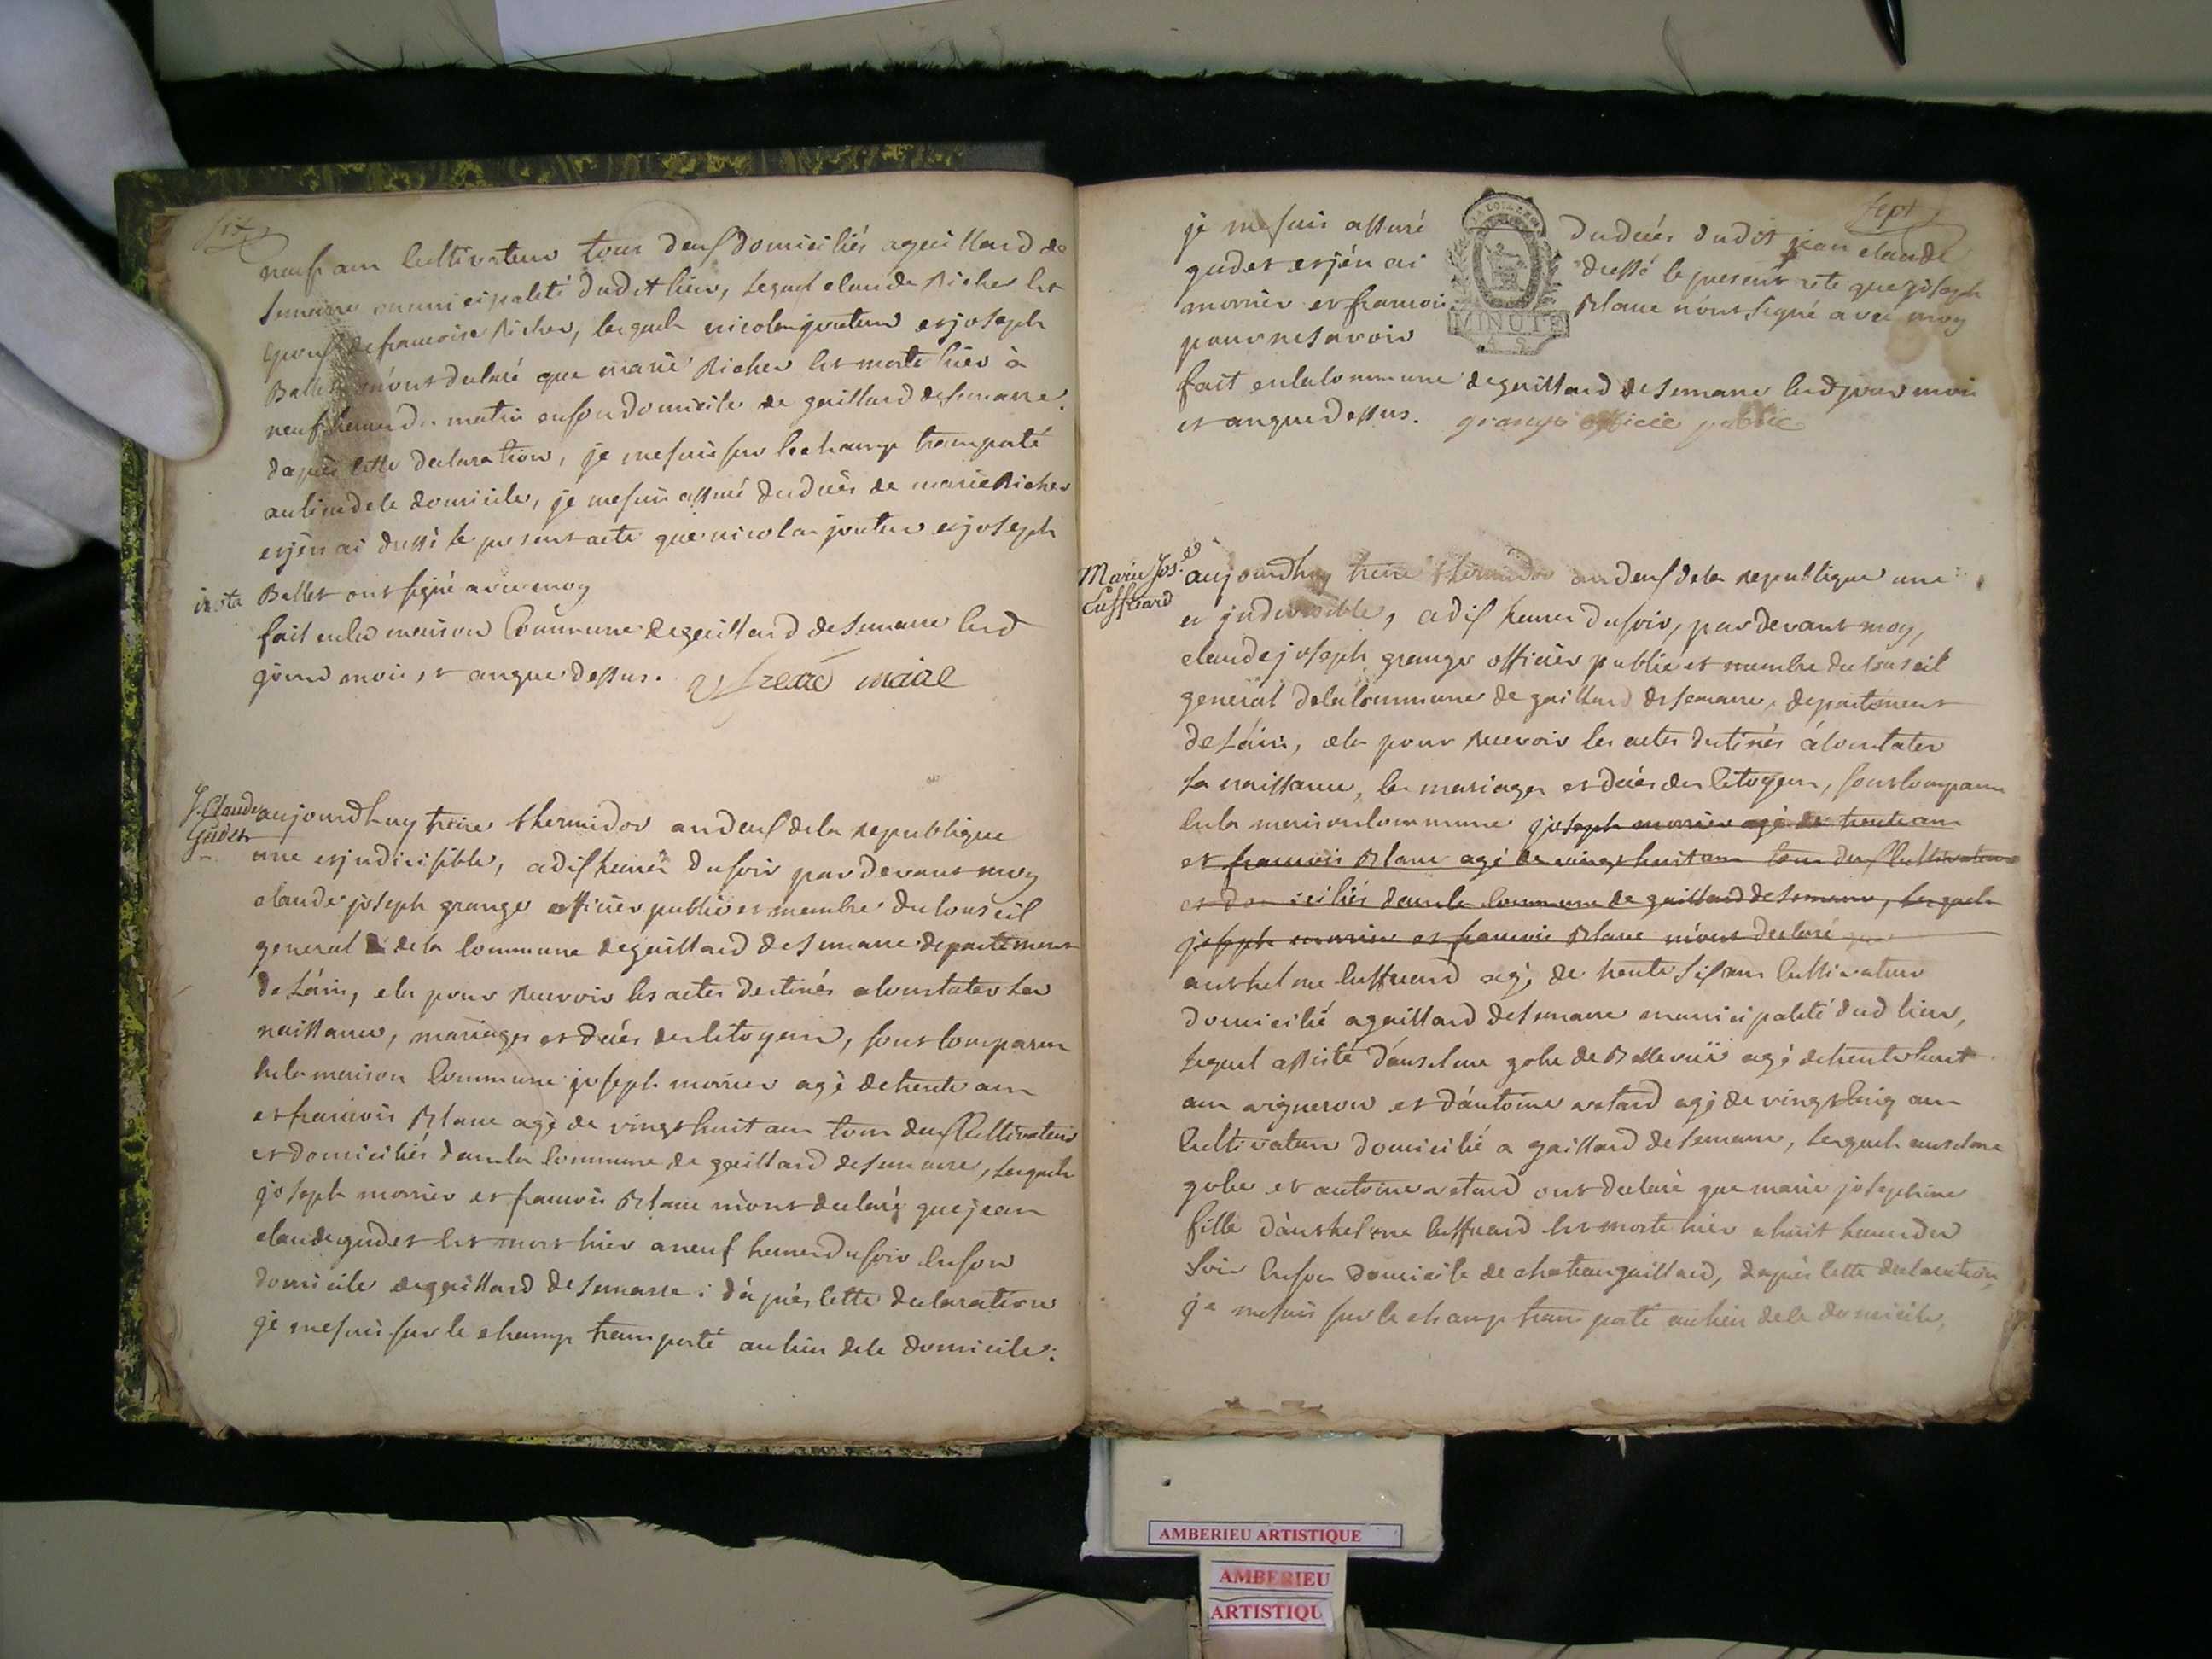 six
neuf ans cultivateur tous deux domiciliés a gaillard de
semarre municipalité dudit lieu, lequel claude Richer est
epoux de francoise Richer, lesquels nicolas jouteur et joseph
Ballet m'ont declaré que marie Richer est morte hier à
neuf heures du matin en son domicile de gaillard de semarre.
dapres cette declaration, je me suis sur le champ transporté
au lieu de ce domicile, je me suis assuré du décès de marie Richer
et j'en ai dressé le present acte que nicolas jouteur et joseph
Ballet ont signé avec moy
fait en la maison Commune de gaillard de semarre lesd
jour mois, et an que dessus. maire
J. Claude
Gudet
aujourdhuy treize thermidor an deux de la republique
une et indivisible, a dix heures du soir par devant moy
claude joseph granger officier public et membre du conseil
general de la commune de gaillard de semarre departement
de L'ain, elu pour recevoir les actes destinés a constater les
naissances, mariages et décès des citoyens, sont comparu
en la maison Commune joseph monier agé de trente ans
et francois Blanc agé de vingt huit ans tous deux Cultivateurs
et domiciliés dans la Commune de gaillard de semarre, lesquels
joseph monier et francois Blanc m'ont declaré que jean
claude gudet est mort hier a neuf heures du soir en son
domicile de gaillard de semarre : d'après cette declaration
je me suis sur le champ transporté au lieu de ce domicile:
sept
je me suis assuré du décès dudit jean claude
gudet et j'en ai dressé le present acte que joseph
monier et francois Blanc n'ont signé avec moy
pour ne savoir
MINUTE
fait en la commune de gaillard de semarre lesd jour mois
et an que dessus. granger officié public
Marie Jos.
Cuffieard
aujourdhuy treize thermidor an deux de la republique une
et indivisible, a dix heures du soir, par devant moy,
claude joseph granger officier public et membre du conseil
general de la commune de gaillard de semarre, departement
de L'ain, elu pour recevoir les actes destinés à constater
la naissance, les mariages et décès des citoyens, sont comparu
en la maison commune joseph monier agé de trente ans
et francois Blanc agé de vingt huit ans tous deux Cultivateurs
et domiciliés dans la Commune de gaillard de semarre, lesquels
joseph monier et francois Blanc m'ont declaré que
anthelme Cuffieard agé de trente six ans Cultivateur
domicilié a gaillard de semarre municipalité dud lieu,
lequel assisté d'anselme gobe de Bellevüe agé de trente huit
ans vigneron et d'antoine agé de vingt cinq ans
Cultivateur domicilié a gaillard de semarre, lesquels anselme
gobe et antoine ont declaré que marie josephine
fille d'anthelme Cuffieard est morte hier a huit heures du
soir en son domicile de chateaugaillard, dapres cette declaration,
je me suis sur le champ transporté au lieu de ce domicile,
AMBERIEU ARTISTIQUE
AMBERIEU
ARTISTIQU